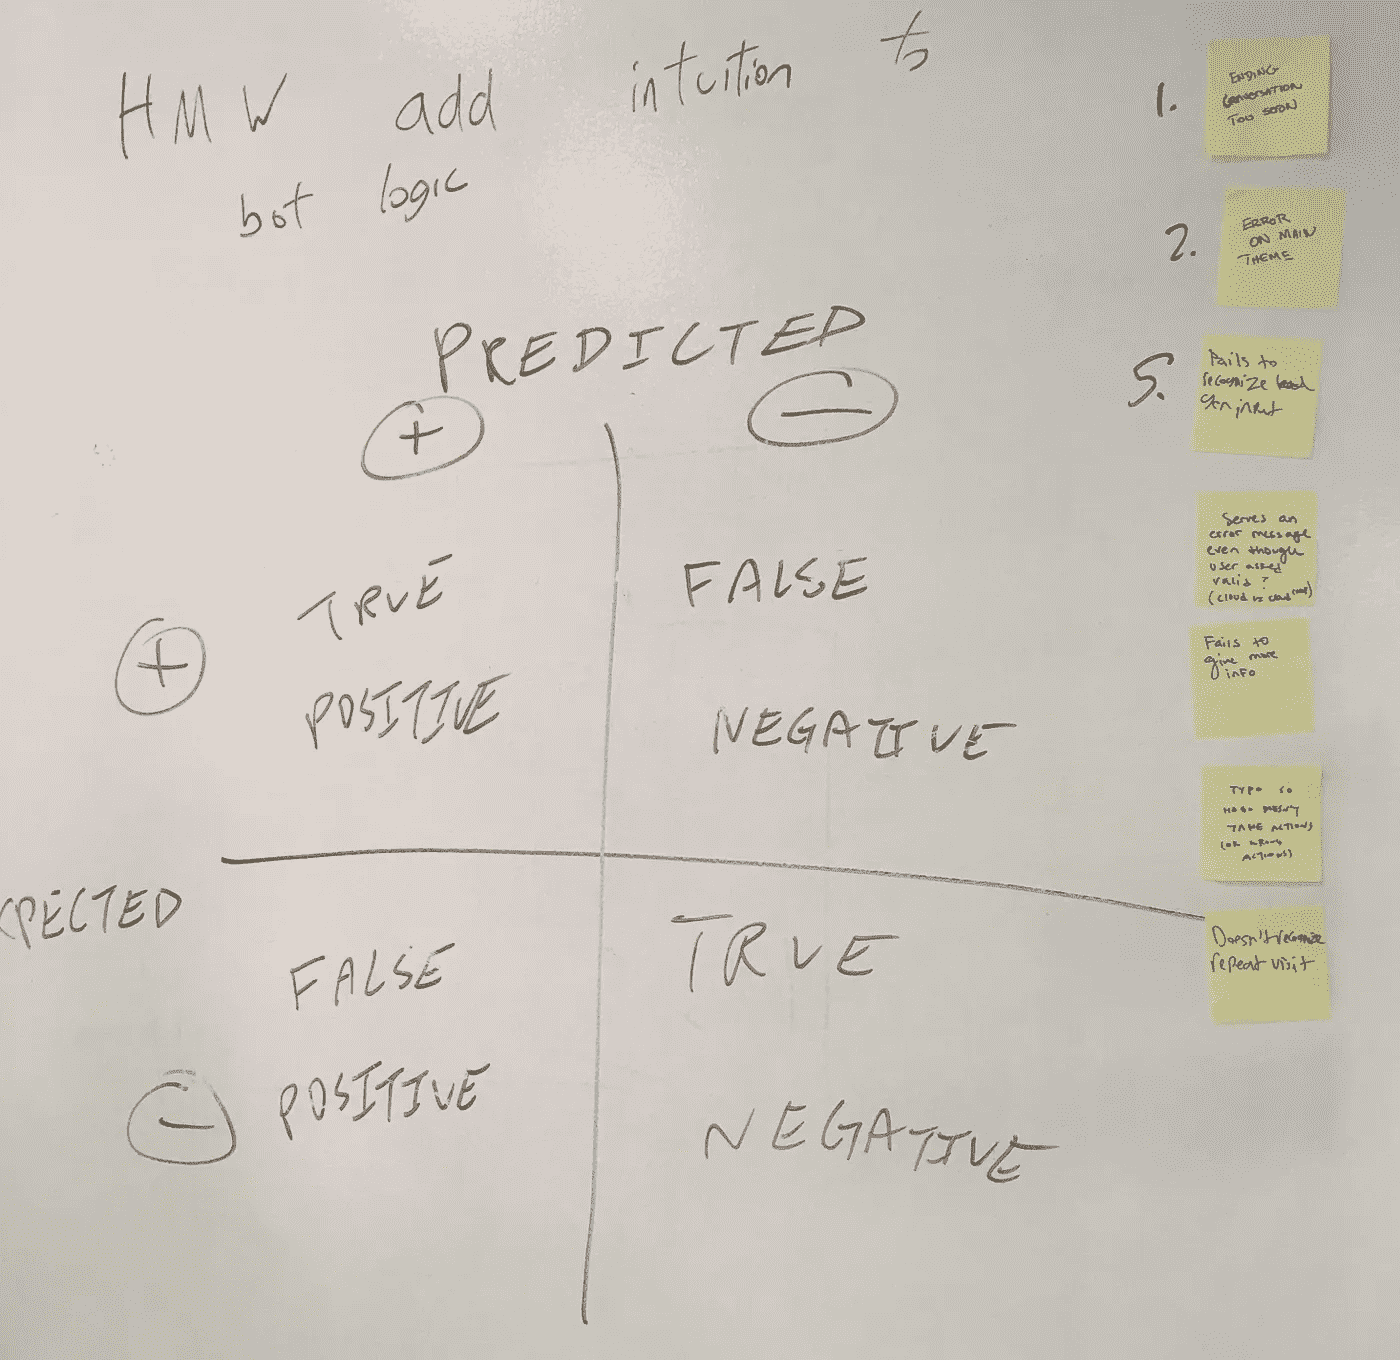 HMW add intuition to
bot logic
PREDICTED
+
−
+
TRUE
POSITIVE
FALSE
NEGATIVE
XPECTED
−
FALSE
POSITIVE
TRUE
NEGATIVE
1.
ENDING
CONVERSATION
TOO SOON
2.
ERROR
ON MAIN
THEME
Fails to
recognize
input
Serves an
error message
even though
user asked
valid ?
(cloud vs cloud
Fails to
give more
info
TYPO SO
TAKE ACTIONS
(OR WRONG
ACTIONS)
Doesn't recognize
repeat visit